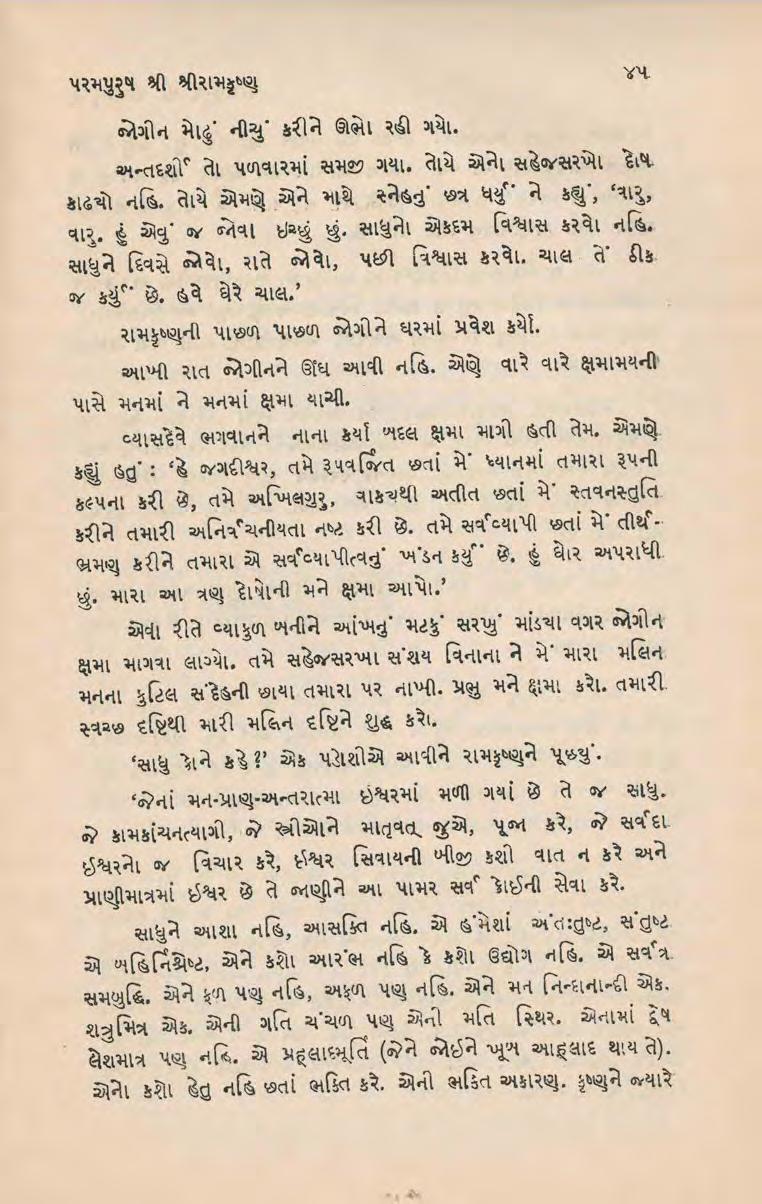 પરમપુરુષ શ્રી શ્રીરામકૃષ્ણ ૪૫
જોગીન મોઢું નીચું કરીને ઊભો રહી ગયો.
અન્તદર્શી તો પળવારમાં સમજી ગયા. તોયે એનો સહેજસરખો દોષ
કાઢયો નહિ. તોયે એમણે એને માથે સ્નેહનું છત્ર ધર્યું ને કહ્યું, ‘વારુ,
વારુ. હું એવું જ જોવા ઇચ્છું છું. સાધુનો એકદમ વિશ્વાસ કરવો નહિ.
સાધુને દિવસે જોવો, રાતે જોવો, પછી વિશ્વાસ કરવો. ચાલ તેં ઠીક
જ કર્યું છે. હવે ઘેરે ચાલ.’
રામકૃષ્ણની પાછળ પાછળ જોગીને ઘરમાં પ્રવેશ કર્યો.
આખી રાત જોગીનને ઊંઘ આવી નહિ. એણે વારે વારે ક્ષમામયની
પાસે મનમાં ને મનમાં ક્ષમા યાચી.
વ્યાસદેવે ભગવાનને નાના કર્યા બદલ ક્ષમા માગી હતી તેમ. એમણે
કહ્યું હતું : ‘હે જગદીશ્વર, તમે રૂપવર્જિત છતાં મેં ધ્યાનમાં તમારા રૂપની
કલ્પના કરી છે, તમે અખિલગુરુ, વાકયથી અતીત છતાં મેં સ્તવનસ્તુતિ
કરીને તમારી અનિર્વચનીયતા નષ્ટ કરી છે. તમે સર્વવ્યાપી છતાં મેં તીર્થ-
ભ્રમણ કરીને તમારા એ સર્વવ્યાપીત્વનું ખંડન કર્યું છે. હું ઘોર અપરાધી
છું. મારા આ ત્રણ દોષોની મને ક્ષમા આપો.’
એવી રીતે વ્યાકુળ બનીને આંખનું મટકું સરખું માંડયા વગર જોગીન
ક્ષમા માગવા લાગ્યો. તમે સહેજસરખા સંશય વિનાના ને મેં મારા મલિન
મનના કુટિલ સંદેહની છાયા તમારા પર નાખી. પ્રભુ મને ક્ષમા કરો. તમારી
સ્વચ્છ દૃષ્ટિથી મારી મલિન દૃષ્ટિને શુદ્ધ કરો.
‘સાધુ કોને કહે?’ એક પડોશીએ આવીને રામકૃષ્ણને પૂછ્યું.
‘જેનાં મન-પ્રાણ-અન્તરાત્મા ઇશ્વરમાં મળી ગયાં છે તે જ સાધુ.
જે કામકાંચનત્યાગી, જે સ્ત્રીઓને માતૃવત્ જુએ, પૂજા કરે, જે સર્વદા
ઈશ્વરનો જ વિચાર કરે, ઈશ્વર સિવાયની બીજી કશી વાત ન કરે અને
પ્રાણીમાત્રમાં ઈશ્વર છે તે જાણીને આ પામર સર્વ કોઈની સેવા કરે.
સાધુને આશા નહિ, આસક્તિ નહિ. એ હંમેશાં અંતઃતુષ્ટ, સંતુષ્ટ
એ બહિર્નિશ્રેષ્ટ, એને કશો આરંભ નહિ કે કશો ઉદ્યોગ નહિ. એ સર્વત્ર
સમબુદ્ધિ. એને ફળ પણ નહિ, અફળ પણ નહિ. એને મન નિન્દાનાન્દી એક.
શત્રુમિત્ર એક. એની ગતિ ચંચળ પણ એની મતિ સ્થિર. એનામાં દ્વેષ
લેશમાત્ર પણ નહિ. એ પ્રહ્લાદમૂર્તિ (જેને જોઇને ખૂબ આહ્લાદ થાય તે).
એનો કશો હેતુ નહિ છતાં ભક્તિ કરે. એની ભક્તિ અકારણ. કૃષ્ણને જ્યારે